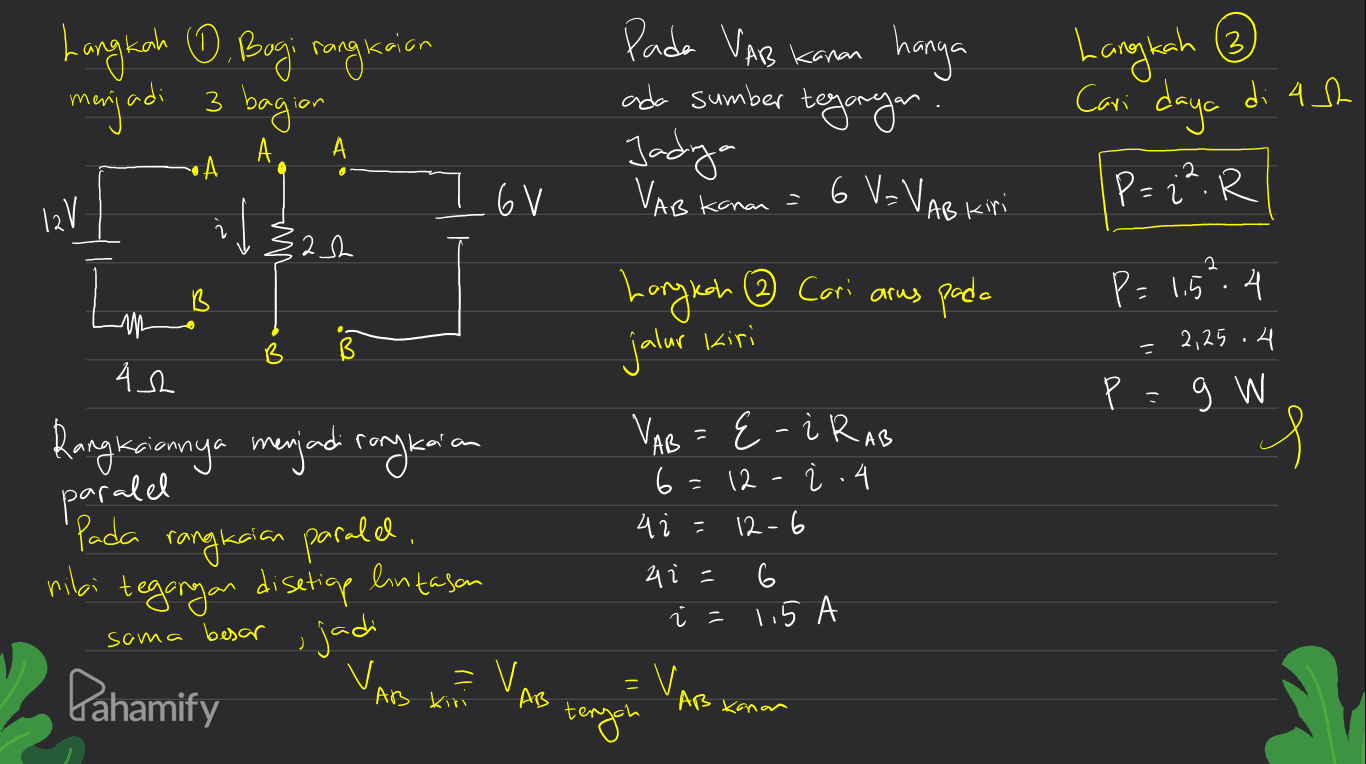 Langkah ①, Bagi rangkaian
menjadi 3 bagian
A A A
12V i 2Ω 6V
B B B
4Ω
Rangkaiannya menjadi rangkaian
paralel
Pada rangkaian paralel,
nilai tegangan disetiap lintasan
sama besar, jadi
V_AB kiri = V_AB tengah = V_AB kanan
Pahamify
Pada V_AB kanan hanya
ada sumber tegangan.
Jadinya
V_AB kanan = 6 V = V_AB kiri
Langkah ② Cari arus pada
jalur kiri
V_AB = ℰ - i R_AB
6 = 12 - i . 4
4i = 12 - 6
4i = 6
i = 1,5 A
Langkah ③
Cari daya di 4Ω
P = i². R
P = 1,5². 4
= 2,25 . 4
P = 9 W